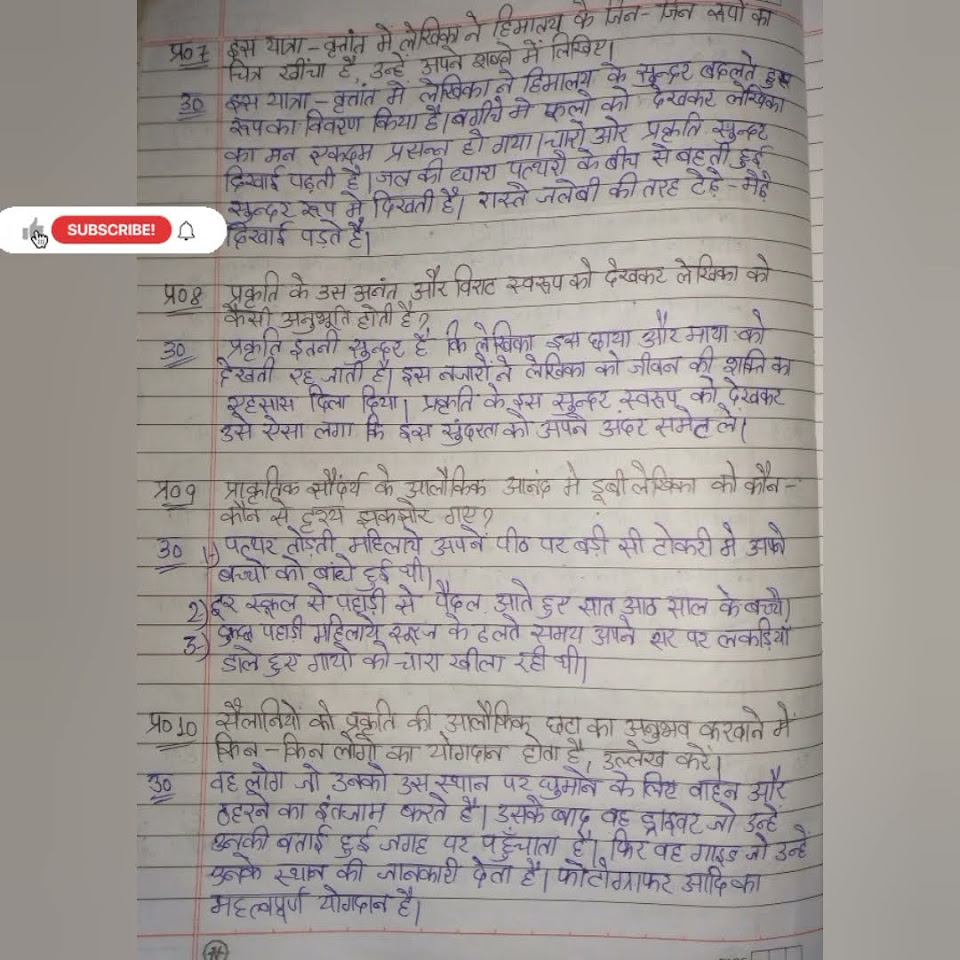 प्र०7 इस यात्रा-वृत्तांत में लेखिका ने हिमालय के जिन-जिन रूपों का
चित्र खींचा है, उन्हें अपने शब्दों में लिखिए।
उ० इस यात्रा-वृत्तांत में लेखिका ने हिमालय के सुन्दर बदलते हुए
रूप का विवरण किया है। बगीचे में फूलों को देखकर लेखिका
का मन एकदम प्रसन्न हो गया। चारो ओर प्रकृति सुन्दर
दिखाई पड़ती है। जल की धारा पत्थरों के बीच से बहती हुई
सुन्दर रूप में दिखती है। रास्ते जलेबी की तरह टेढ़े-मेढ़े
दिखाई पड़ते है।
SUBSCRIBE!
प्र०8 प्रकृति के उस अनंत और विराट स्वरूप को देखकर लेखिका को
कैसी अनुभूति होती है?
उ० प्रकृति इतनी सुन्दर है कि लेखिका इस छाया और माया को
देखती रह जाती है। इस नजारों ने लेखिका को जीवन की शक्ति का
एहसास दिला दिया। प्रकृति के इस सुन्दर स्वरूप को देखकर
उसे ऐसा लगा कि इस सुंदरता को अपने अंदर समेट ले।
प्र०9 प्राकृतिक सौंदर्य के आलौकिक आनंद मे डूबी लेखिका को कौन-
कौन से दृश्य झकझोर गए?
उ० 1) पत्थर तोड़ती महिलाये अपने पीठ पर बड़ी सी टोकरी मे अपने
बच्चो को बांधे हुई थी।
2) दूर स्कूल से पहाड़ी से पैदल आते हुए सात आठ साल के बच्चे।
3) कुछ पहाडी महिलाये सूरज के ढलते समय अपने सर पर लकड़ियाँ
डाले हुए गायो को चारा खीला रही थी।
प्र०10 सैलानियों को प्रकृति की आलौकिक छटा का अनुभव करवाने में
किन-किन लोगों का योगदान होता है, उल्लेख करें।
उ० वह लोग जो उनको उस स्थान पर घुमाने के लिए वाहन और
ठहरने का इंतजाम करते है। उसके बाद वह ड्राइवर जो उन्हें
उनकी बताई हुई जगह पर पहुँचाता है। फिर वह गाइड जो उन्हें
उनके स्थान की जानकारी देता है। फोटोग्राफर आदि का
महत्वपूर्ण योगदान है।